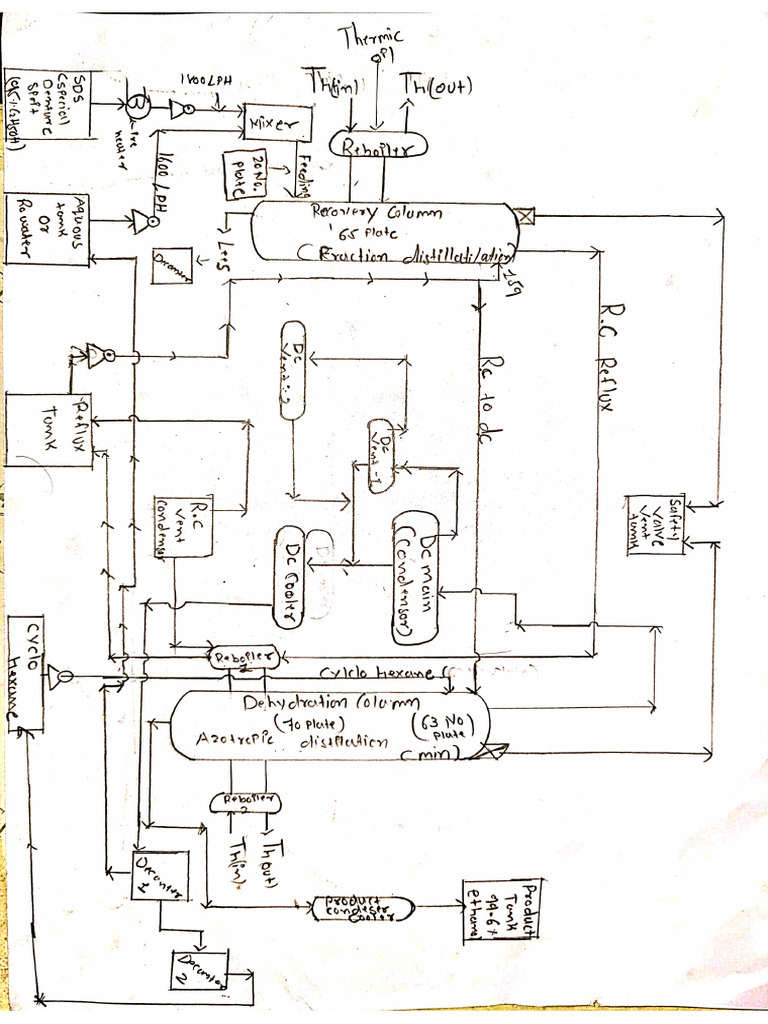 Thermic
Oil
Th(in)
Th(out)
Reboiler
1800 LPH
SDS
(special
Denature
Spirit
Pre
heater
Mixer
1600 LPH
Feeding
20 No.
plate
Aquous
tank
or
Ro water
Recovery column
65 plate
(Fraction distillatilation)
Lees
159
R.C Reflux
Rc to dc
Reflux
Tank
Dc
Vent-2
Dc
Vent-1
R.C
vent
condensor
Dc cooler
Dc main
(condensor)
Safety
Valve
Vent
tank
Cyclo
hexane
Reboiler
1
Cylclo Hexane
Dehydration column
(70 plate)
(63 No
plate
Azotropic distilation
(min)
Reboiler
2
Th(in)
Th(out)
Decanter
1
Decanter
2
product
condeser
cooler
Product
Tank
99.6%
ethanol